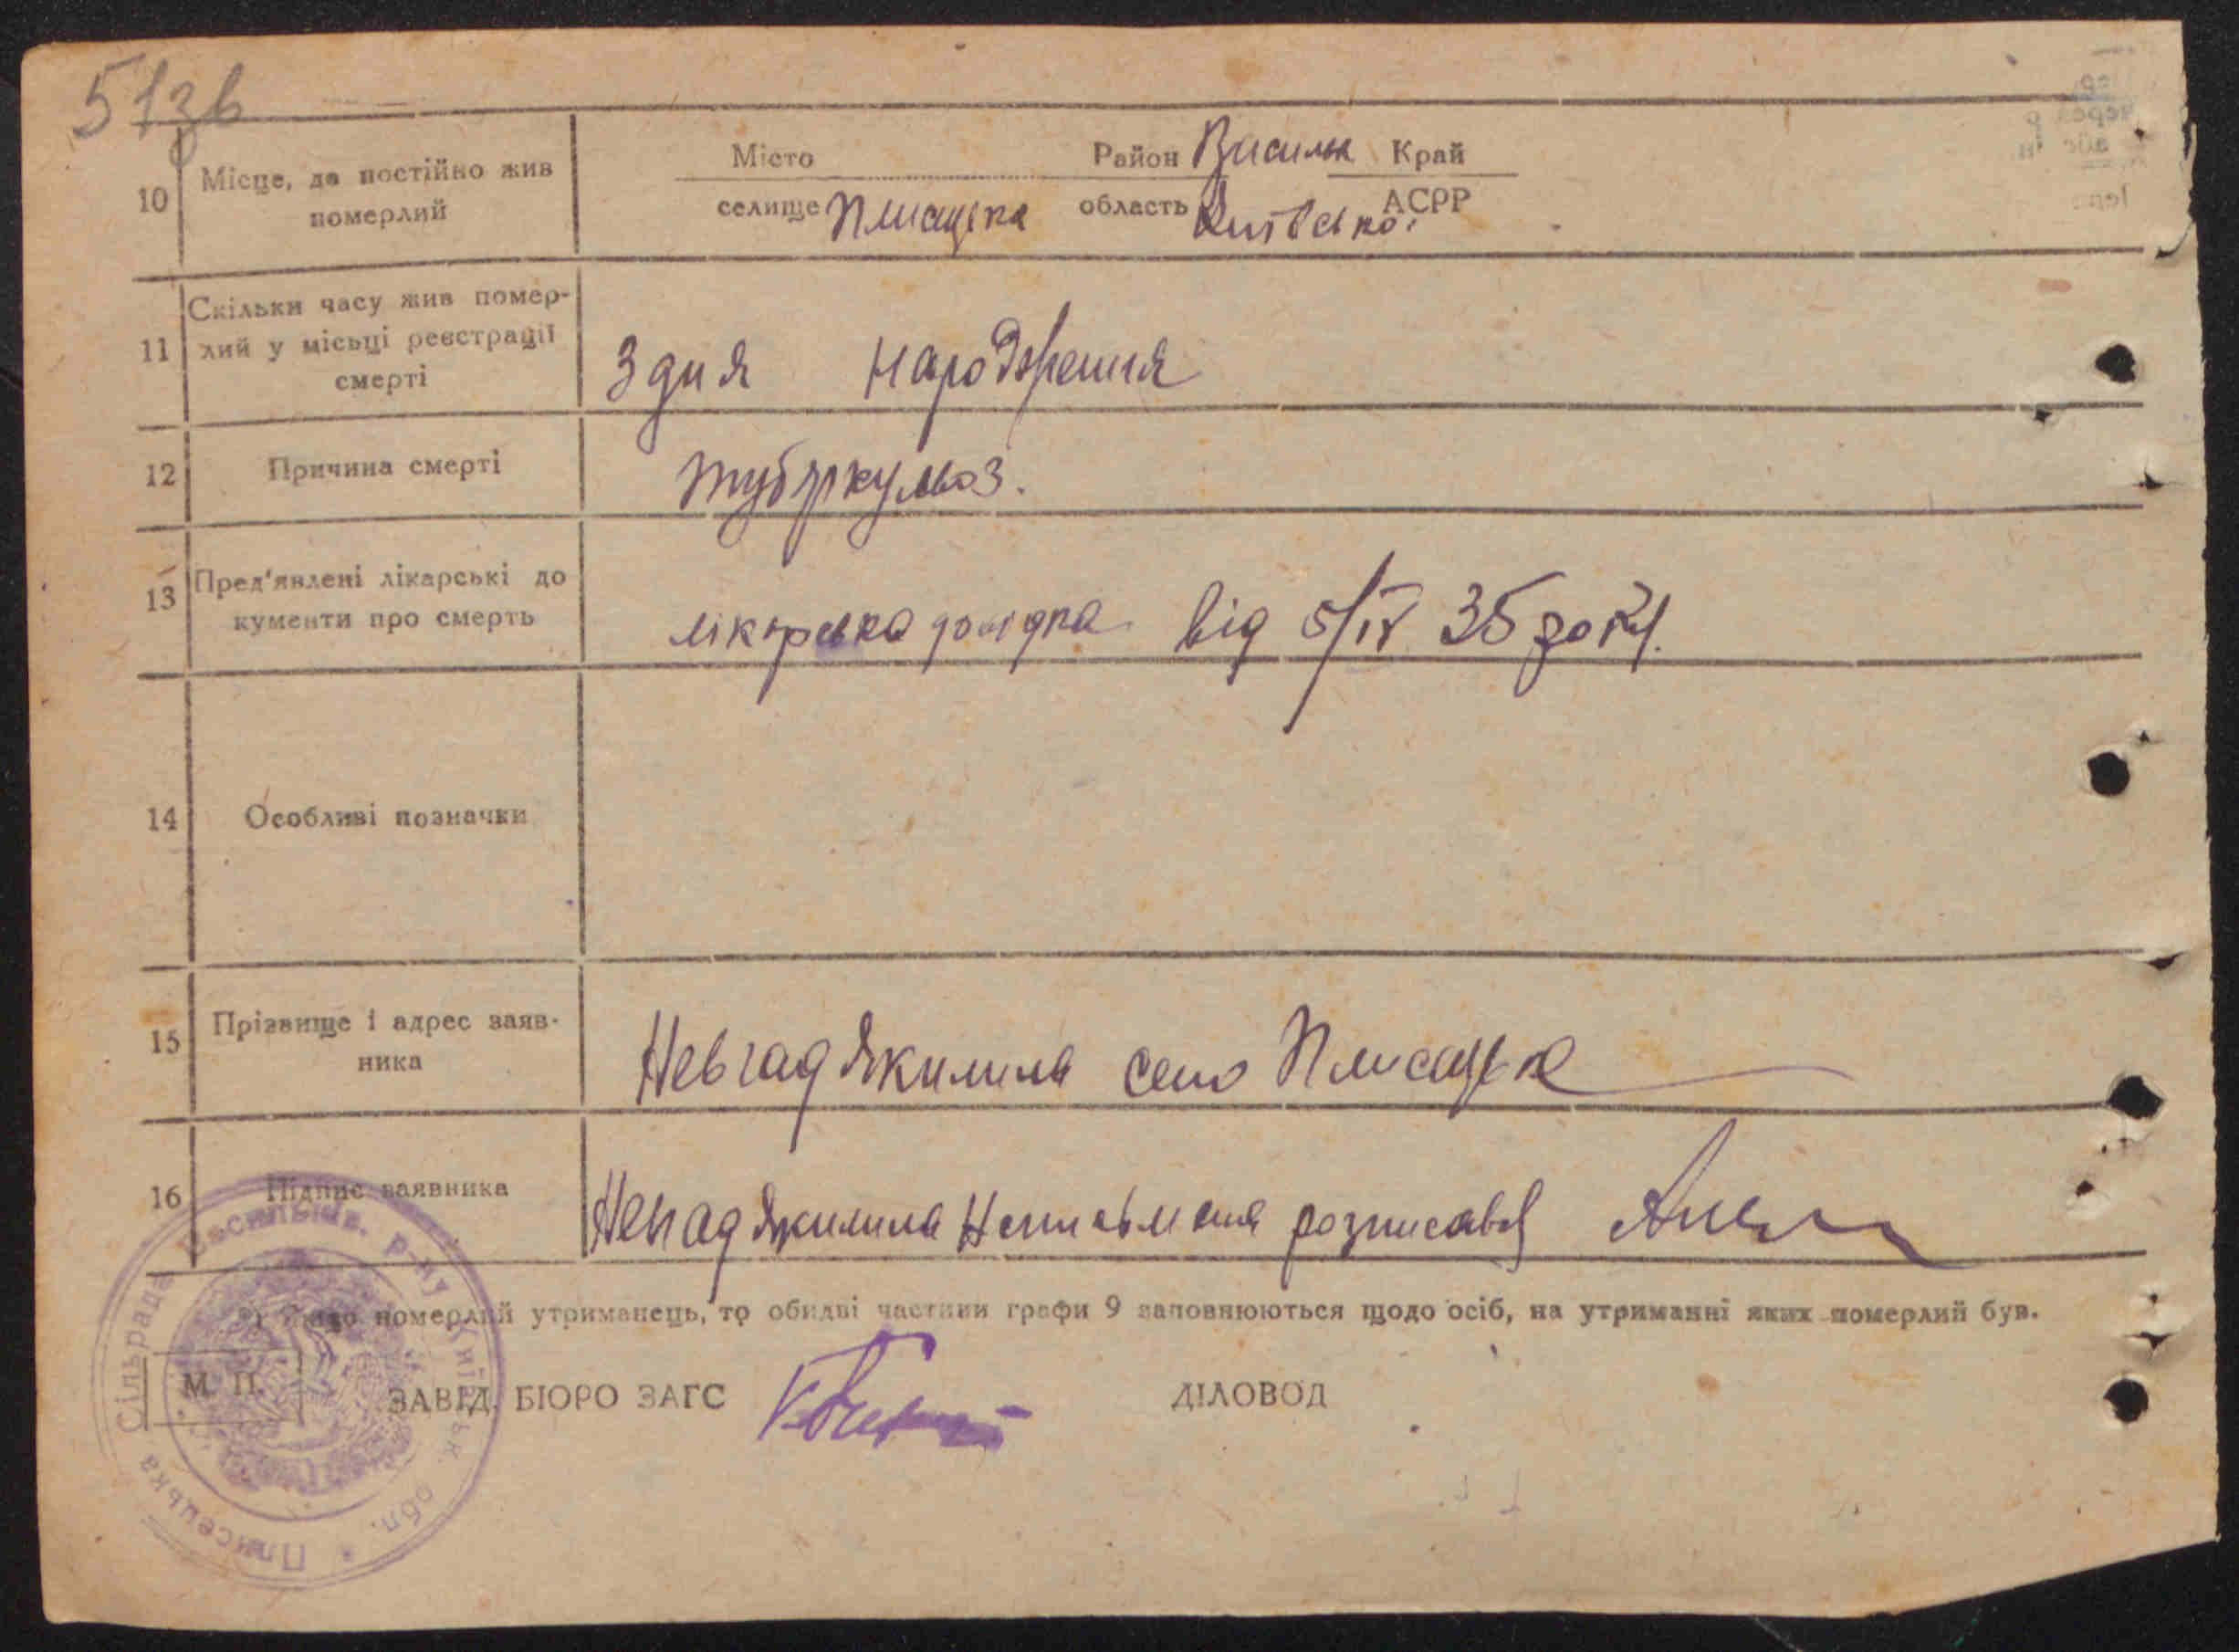 51зв
10 Місце, де постійно жив померлий
Місто Район Васильк Край
селище Плисецка область Київської АСРР
11 Скільки часу жив помер-
лий у місьці реєстрації
смерті
З дня народження
12 Причина смерті
туберкульоз.
13 Пред'явлені лікарські до
кументи про смерть
лікарська довідка від 5/IV 35 року.
14 Особливі позначки
15 Прізвище і адрес заяв-
ника
Невгад Якилина село Плисецке
16 Підпис заявника
Невгад Якилина Неписьмена розписавсь
*) Якщо померлий утриманець, то обидві частини графи 9 заповнюються щодо осіб, на утриманні яких померлий був.
М. П.
ЗАВІД. БЮРО ЗАГС ДІЛОВОД
Плисецька Сільрада Васильків. р-ну Київськ. обл.